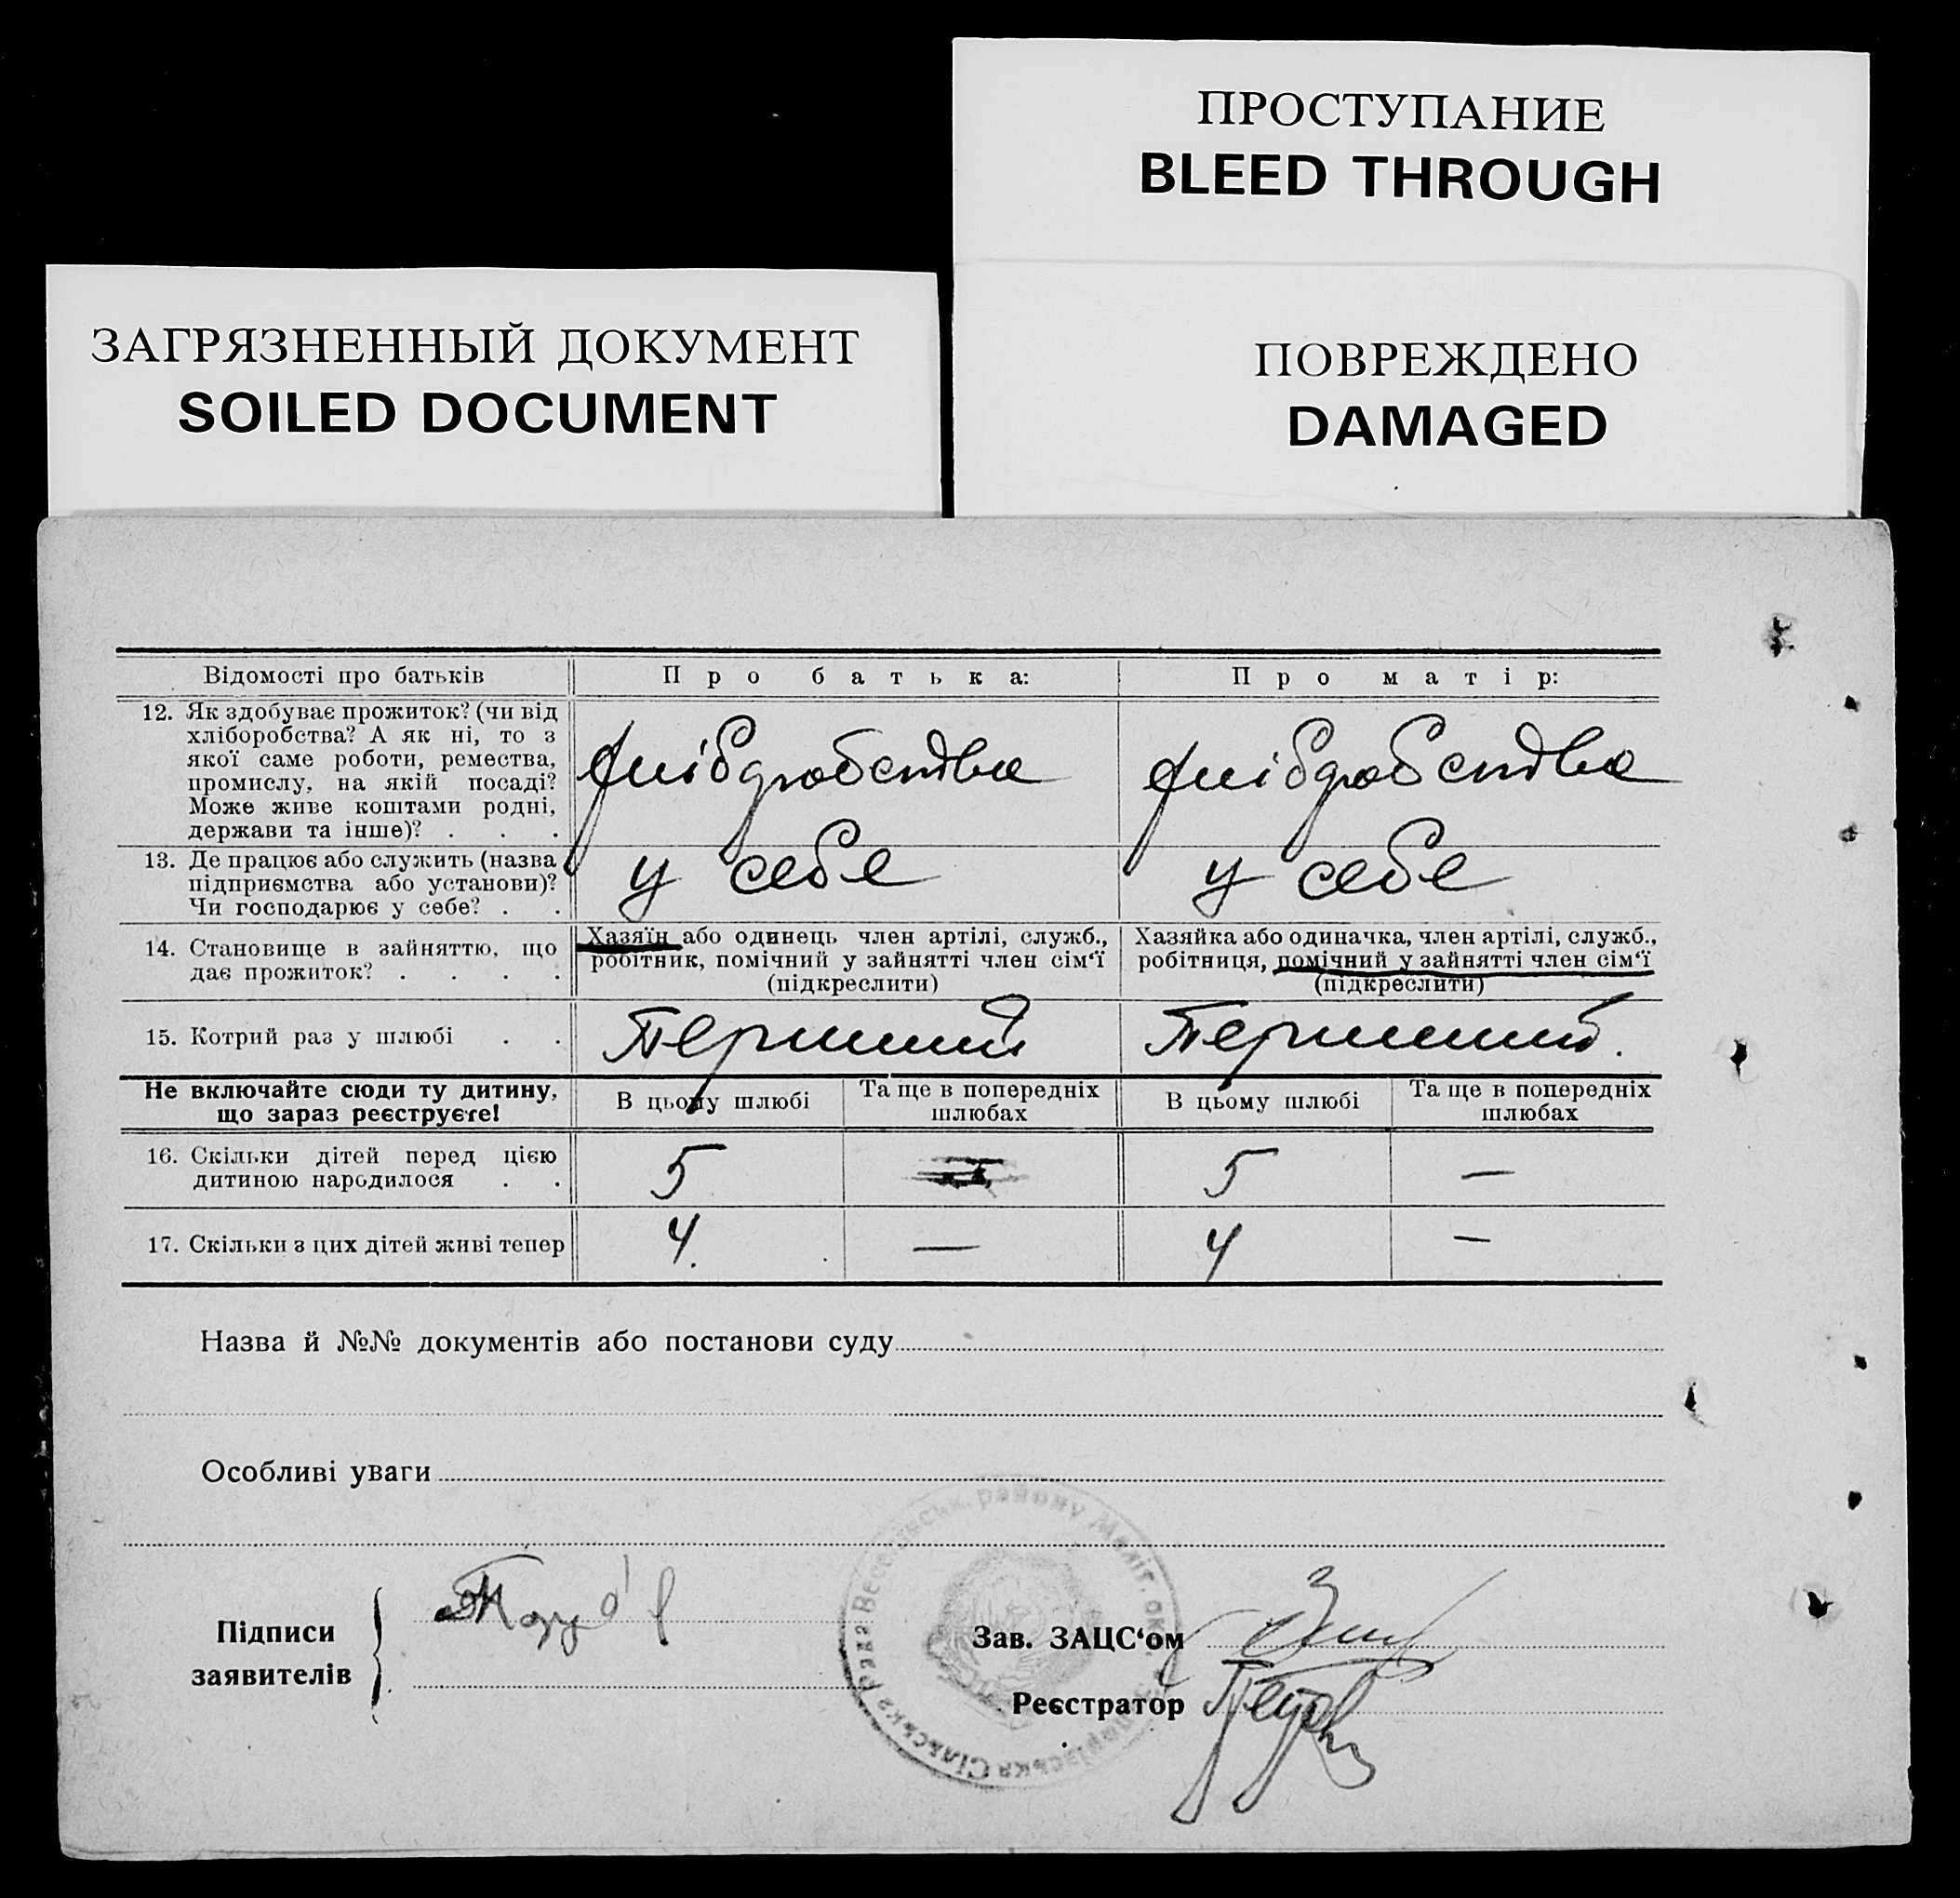 ПРОСТУПАНИЕ
BLEED THROUGH
ЗАГРЯЗНЕННЫЙ ДОКУМЕНТ
SOILED DOCUMENT
ПОВРЕЖДЕНО
DAMAGED
Відомості про батьків Про батька: Про матір:
12. Як здобуває прожиток? (чи від
хліборобства? А як ні, то з
якої саме роботи, ремества,
промислу, на якій посаді?
Може живе коштами родні,
держави та інше)? . . .
13. Де працює або служить (назва
підприємства або установи)?
Чи господарює у себе? . .
у себе у себе
14. Становище в зайняттю, що
дає прожиток? . . . .
Хазяїн або одинець член артілі, служб.,
робітник, помічний у зайнятті член сім‘ї
(підкреслити)
Хазяйка або одиначка, член артілі, служб.,
робітниця, помічний у зайнятті член сім‘ї
(підкреслити)
15. Котрий раз у шлюбі . . Перший Перший.
Не включайте сюди ту дитину,
що зараз реєструєте!
В цьому шлюбі
Та ще в попередніх
шлюбах
В цьому шлюбі
Та ще в попередніх
шлюбах
16. Скільки дітей перед цією
дитиною народилося . .
5 5 —
17. Скільки з цих дітей живі тепер 4. — 4 —
Назва й №№ документів або постанови суду
Особливі уваги
Підписи
заявителів
Зав. ЗАЦС‘ом
Реєстратор
району Меліт. ок.
Сільська Рада